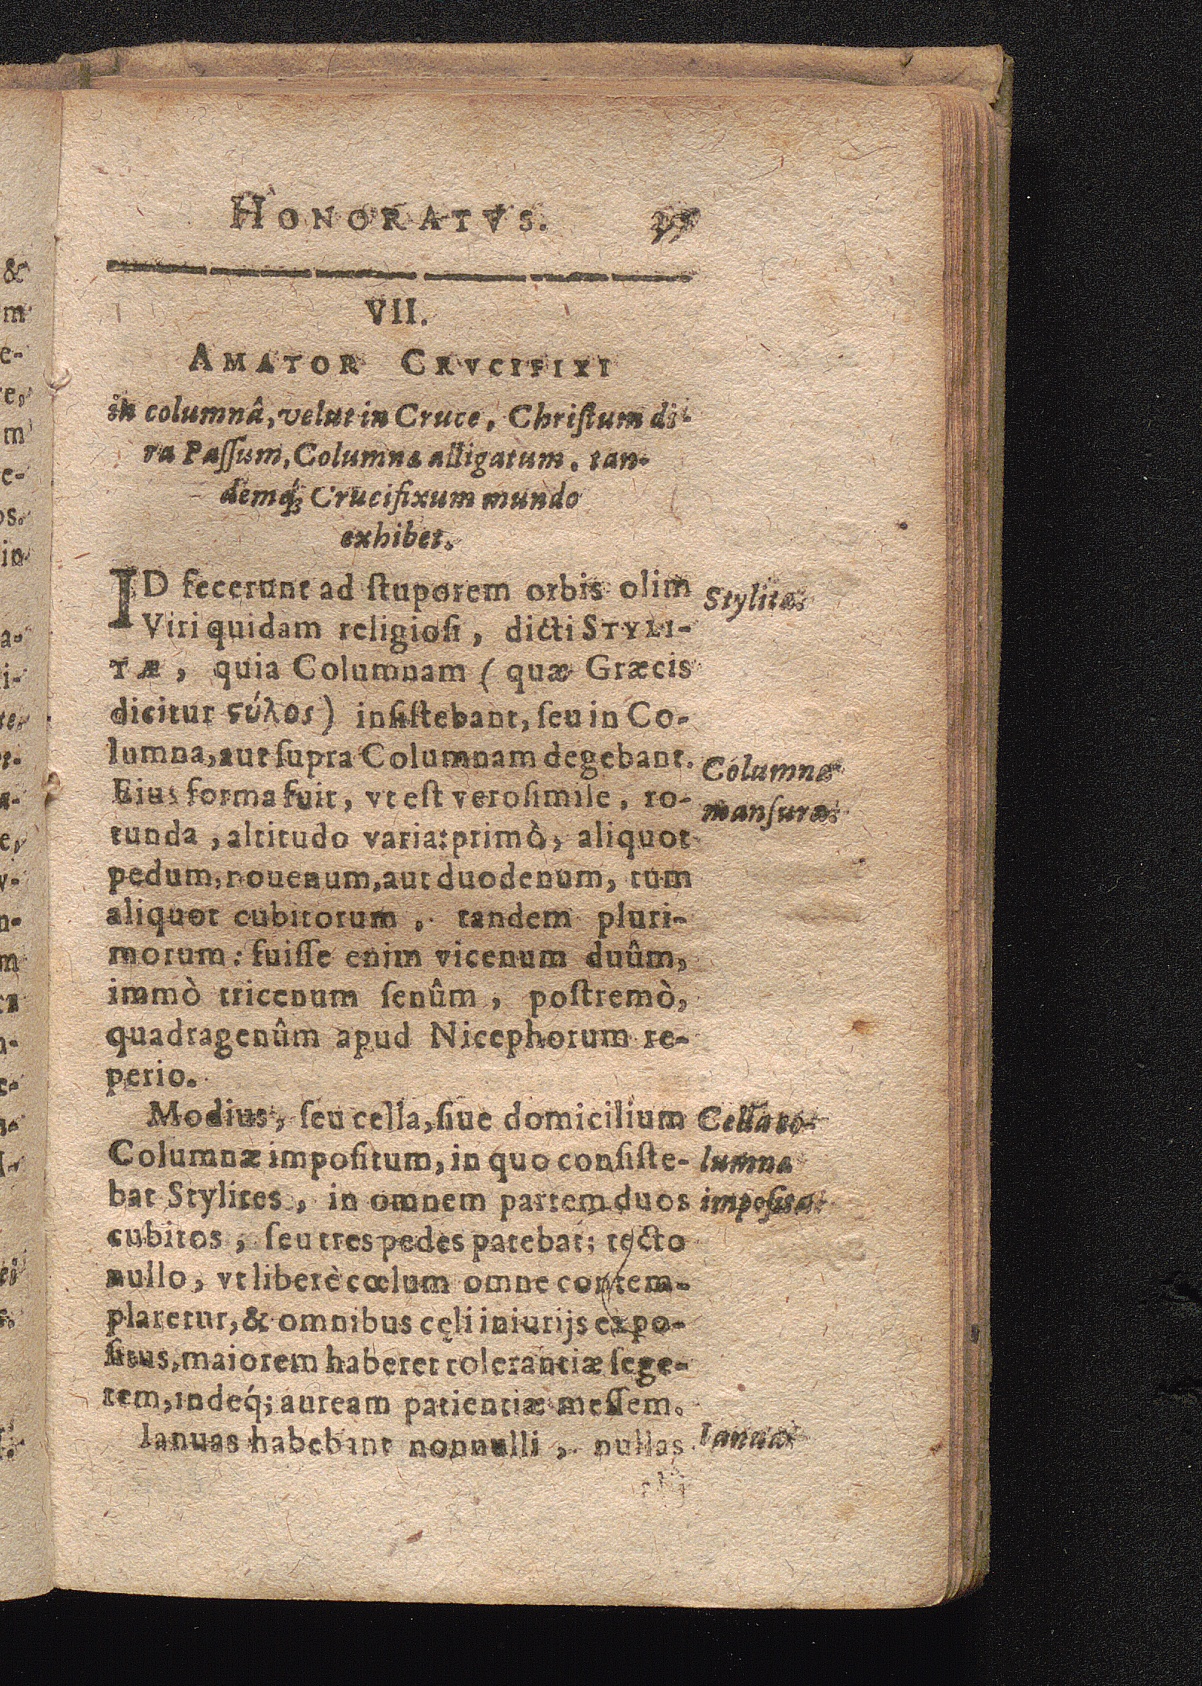 HONORATVS.
VII.
AMATOR CRVCIFIXI
in columnâ, velut in Cruce, Chriſtum di-
ra Paſſum, Columnæ alligatum, tan-
demq́; Crucifixum mundo
exhibet.
ID fecerunt ad ſtuporem orbis olim
Viri quidam religioſi, dicti STYLI-
TÆ, quia Columnam (quæ Græcis
dicitur ςύλος) inſiſtebant, ſeu in Co-
lumna, aut ſupra Columnam degebant.
Eius forma fuit, vt eſt veroſimile, ro-
tunda, altitudo varia: primò, aliquot
pedum, nouenum, aut duodenum, tum
aliquot cubitorum, tandem pluri-
morum: fuiſſe enim vicenum duûm,
immò tricenum ſenûm, poſtremò,
quadragenûm apud Nicephorum re-
perio.
Modius, ſeu cella, ſiue domicilium
Columnæ impoſitum, in quo conſiſte-
bat Stylites, in omnem partem duos
cubitos, ſeu tres pedes patebat; tecto
nullo, vt liberè cœlum omne contem-
plaretur, & omnibus cęli iniurijs expo-
ſitus, maiorem haberet tolerantiæ ſege-
tem, indeq́; auream patientiæ meſſem.
Ianuas habebant nonnulli, nullas
alij
Stylitæ.
Columnæ
manſuræ.
Cella co-
lumnæ
impoſita.
Ianuæ